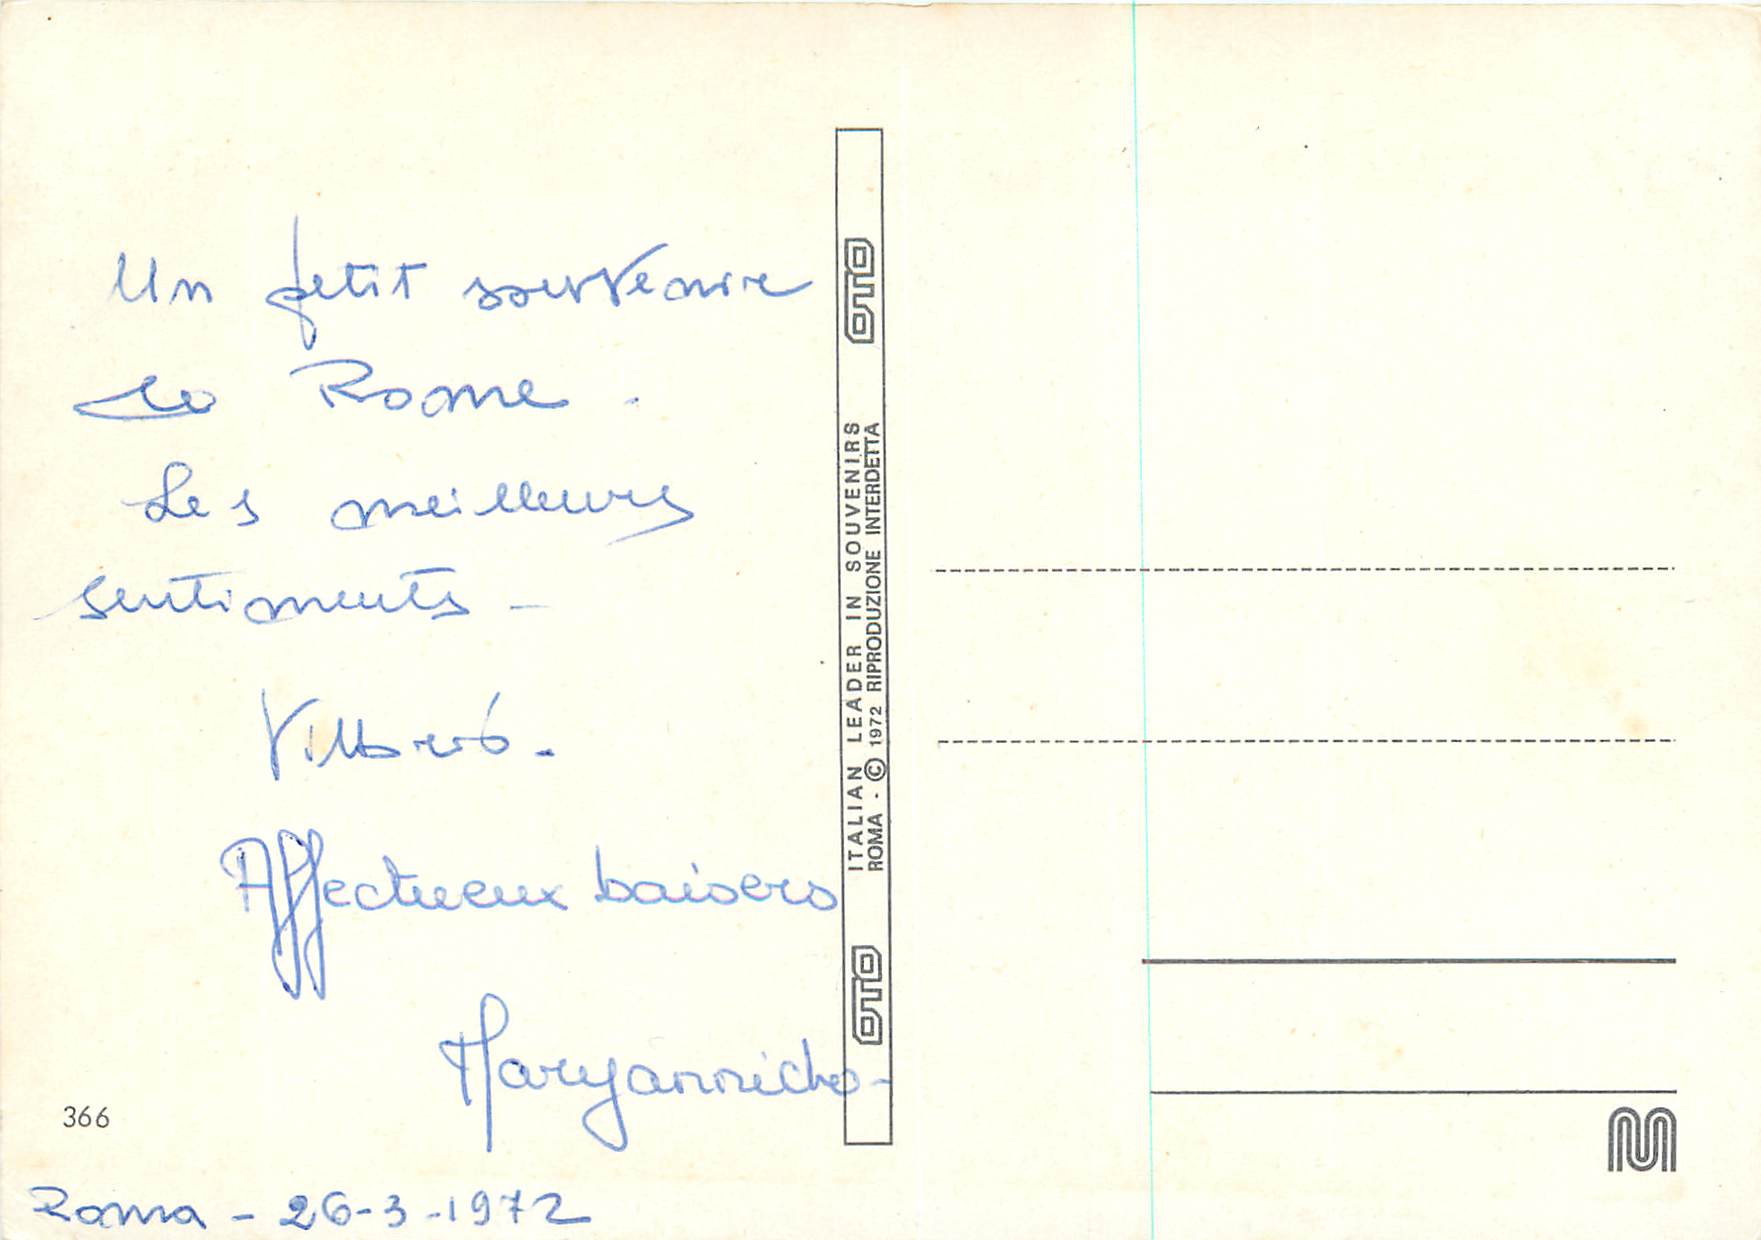 Un petit souvenire
de Rome.
Les meilleurs
sentiments -
Affectueux baisers
Maryannicke -
366
Roma - 26-3-1972
OTO
ITALIAN LEADER IN SOUVENIRS
ROMA - © 1972 RIPRODUZIONE INTERDETTA
OTO